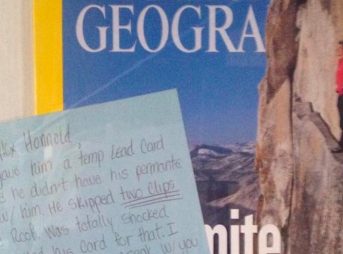 GEOGRA
Alex Honnold
gave him a Temp Lead Card
he didn't have his permante
w/ him. He skipped two clips
Rock. Was totally shocked
his Card for that. I
w/ you
nite